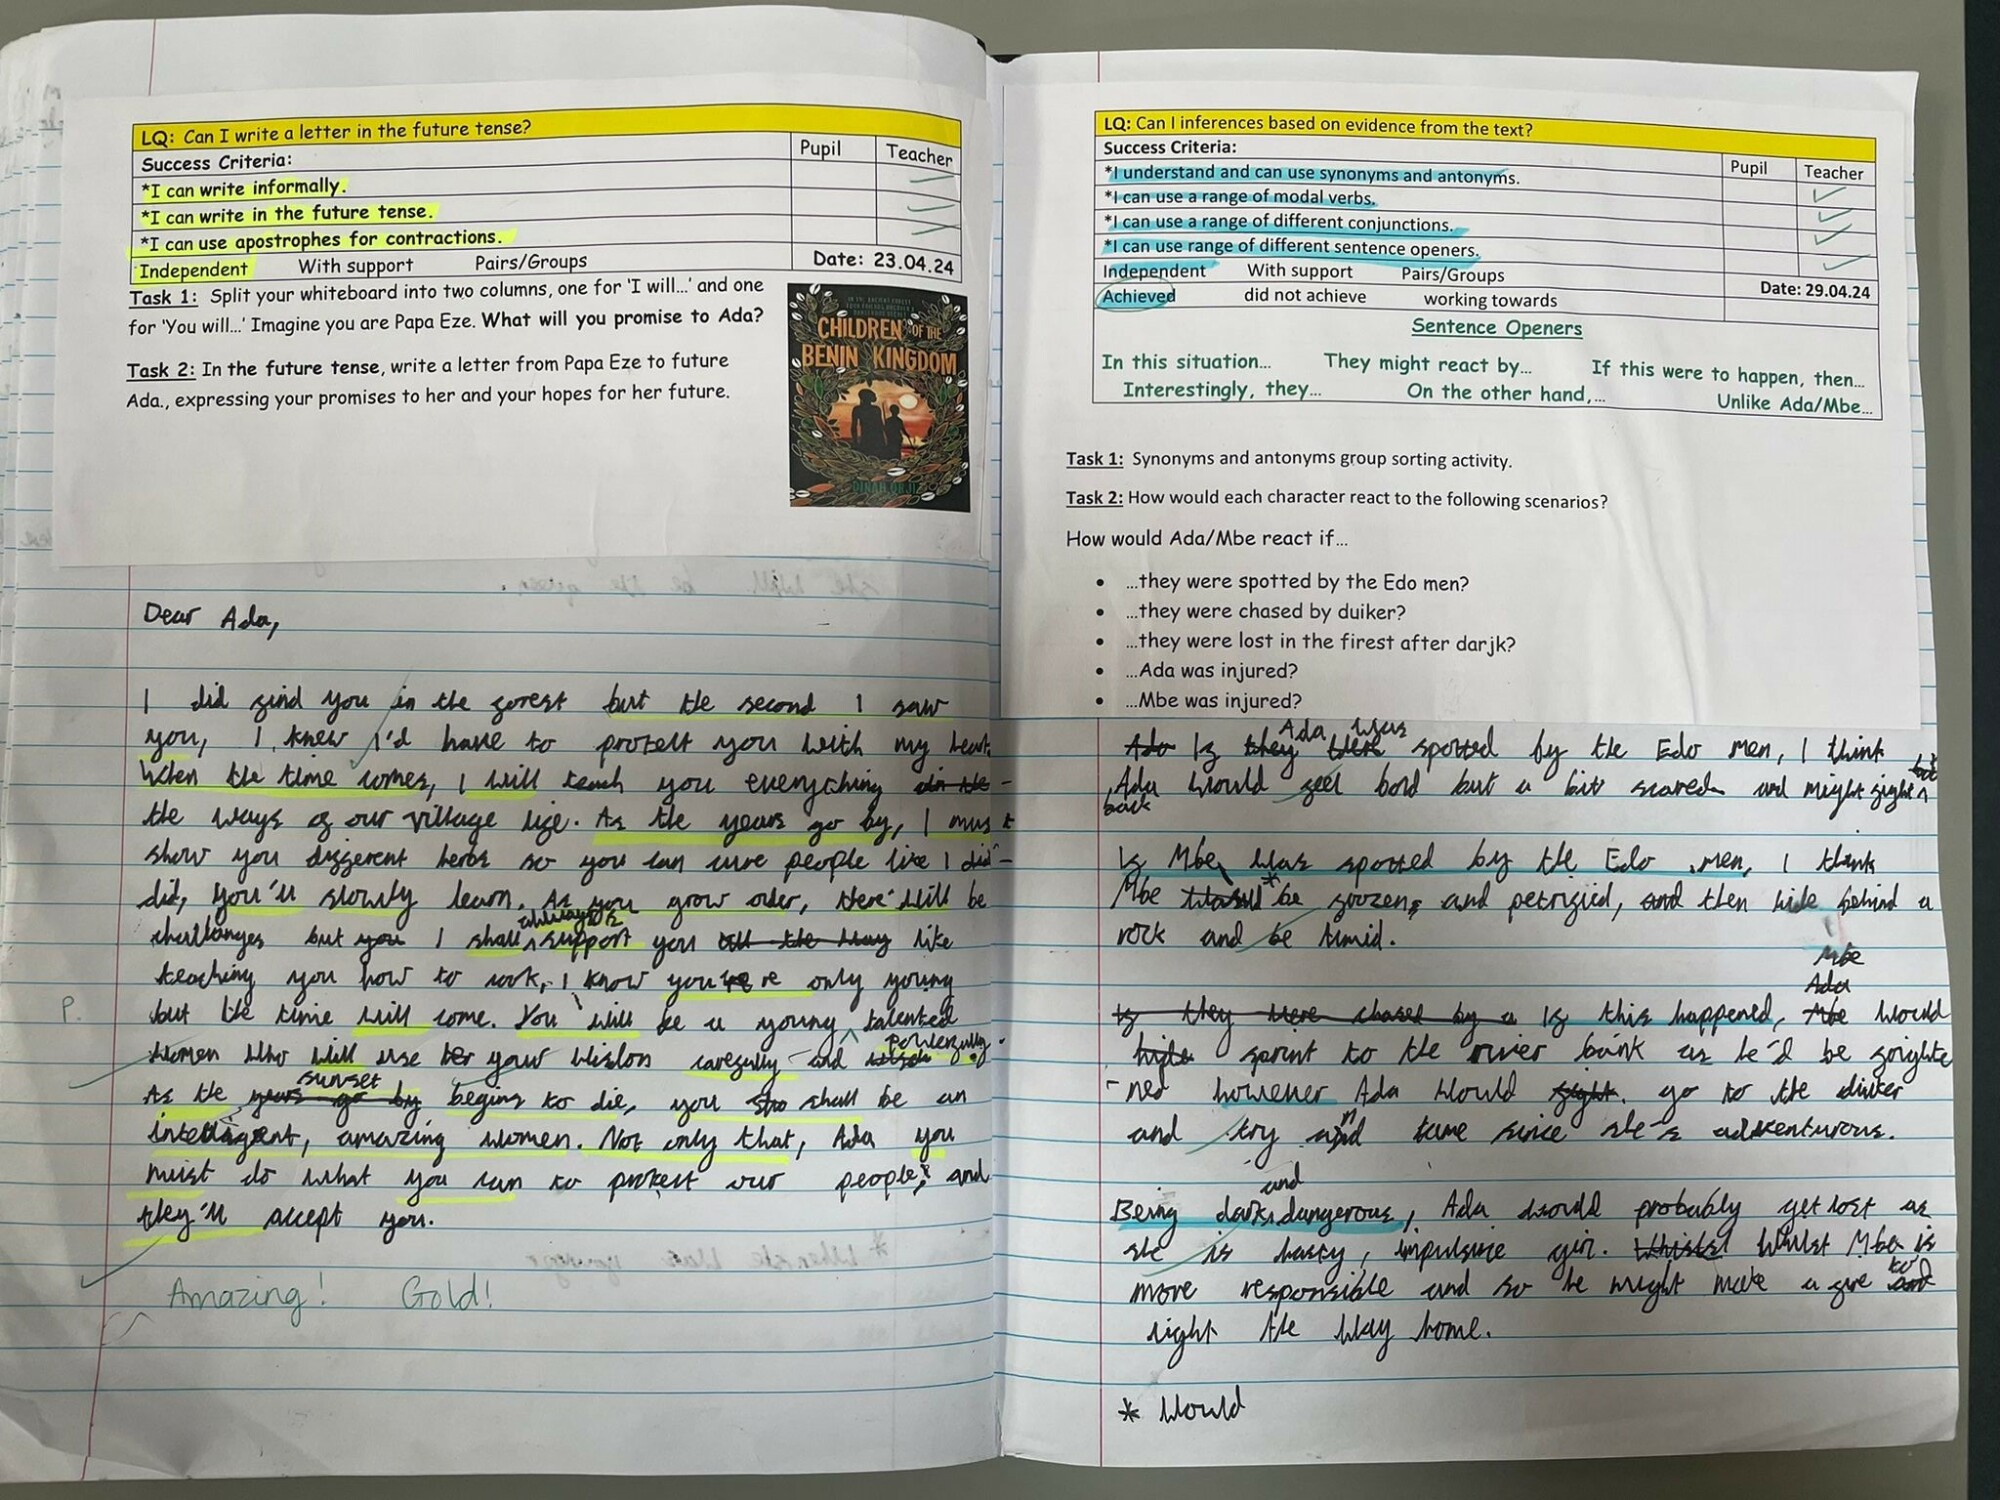 LQ: Can I write a letter in the future tense?
Success Criteria:
Pupil
Teacher
*I can write informally.
*I can write in the future tense.
*I can use apostrophes for contractions.
Independent With support Pairs/Groups
Date: 23.04.24
Task 1: Split your whiteboard into two columns, one for 'I will...' and one
for 'You will...' Imagine you are Papa Eze. What will you promise to Ada?
Task 2: In the future tense, write a letter from Papa Eze to future
Ada., expressing your promises to her and your hopes for her future.
CHILDREN OF THE
BENIN KINGDOM
Dear Ada,
I did find you in the forest but the second I saw
you, I knew I'd have to protect you with my heart.
When the time comes, I will teach you everything
the ways of our village life. As the years go by, I must
show you different herbs so you can cure people like I did
did, you'll slowly learn. As you grow older, there will be
always
challanges but you I shall support you till the way like
teaching you how to cook, I know you're only young
P.
but the time will come. You will be a young talented
women who will use her your wisdon carefully and powerfully.
sunset
As the years go by begins to die, you sha shall be an
intelligent, amazing women. Not only that, Ada you
must do what you can to protect our people, and
they'll accept you.
Amazing! Gold!
LQ: Can I inferences based on evidence from the text?
Success Criteria:
Pupil
Teacher
*I understand and can use synonyms and antonyms.
*I can use a range of modal verbs.
*I can use a range of different conjunctions.
*I can use range of different sentence openers.
Independent With support Pairs/Groups
Date: 29.04.24
Achieved did not achieve working towards
Sentence Openers
In this situation... They might react by... If this were to happen, then...
Interestingly, they... On the other hand,... Unlike Ada/Mbe...
Task 1: Synonyms and antonyms group sorting activity.
Task 2: How would each character react to the following scenarios?
How would Ada/Mbe react if...
• ...they were spotted by the Edo men?
• ...they were chased by duiker?
• ...they were lost in the firest after darjk?
• ...Ada was injured?
• ...Mbe was injured?
Ada was
Ada If they were spotted by the Edo men, I think
Ada would feel bold but a bit scared and might fight
back
If Mbe was spotted by the Edo men, I think
Mbe * be froozen, and petrified, and then hide behind a
rock and be timid.
Mbe
Ada
If they were chased by a If this happened, Mbe would
hide sprint to the river bank as he'd be frighte
-ned however Ada would fight. go to the duiker
and try and tame since she's adventurous.
and
Being dark dangerous, Ada would probably get lost as
she is hasty, impulsive girl. Whilst Mbe is
more responsible and so he might make a fire to and
light the way home.
* Would